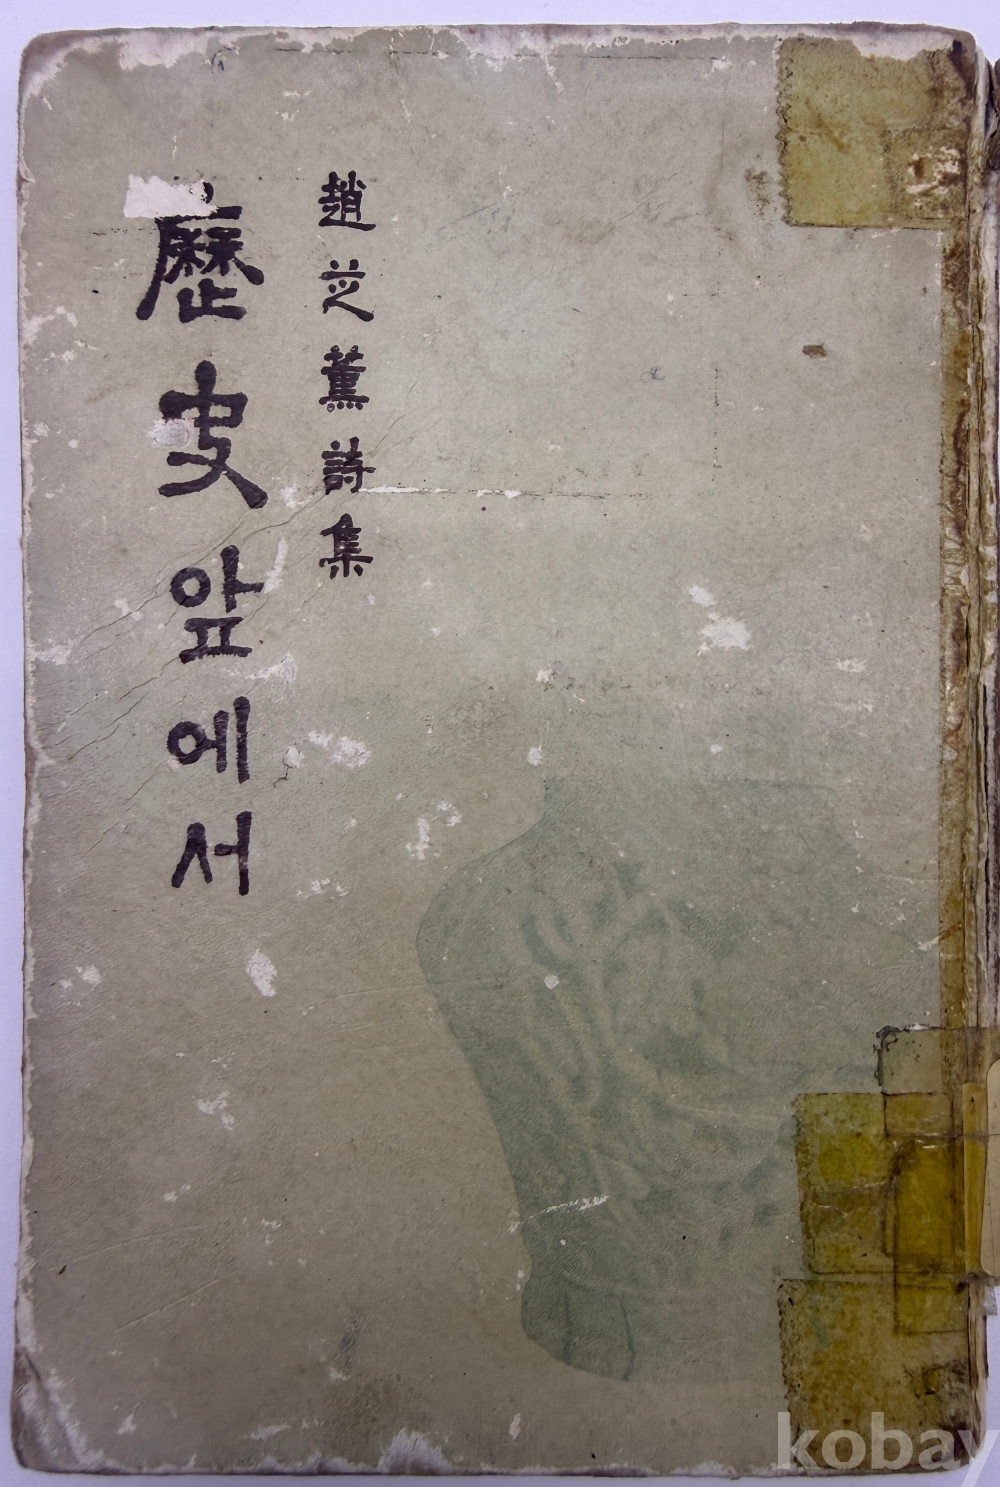 趙芝薰詩集
歷史앞에서
kobay